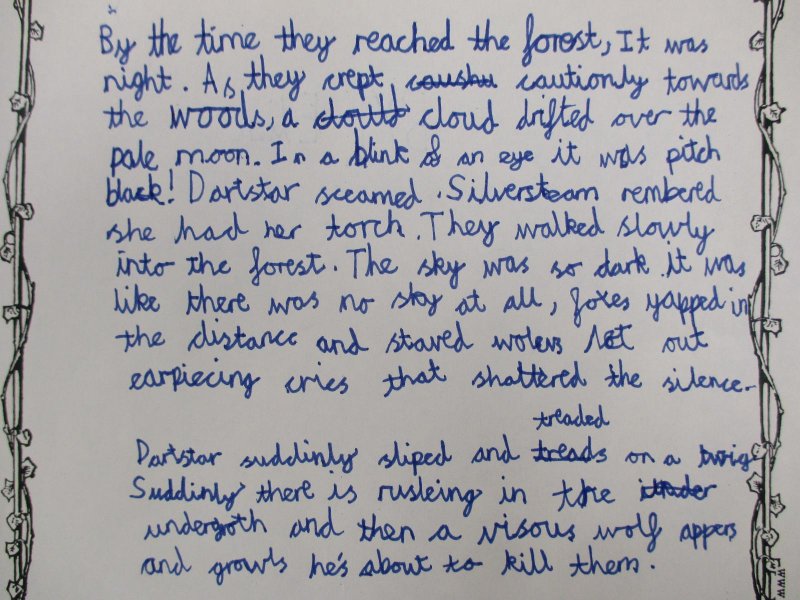 By the time they reached the forest, It was
night. As they crept caushu cautionly towards
the woods, a clould cloud drifted over the
pale moon. In a blink of an eye it was pitch
black! Dartstar sceamed. Silversteam rembered
she had her torch. They walked slowly
into the forest. The sky was so dark it was
like there was no sky at all, foxes yapped in
the distance and staved wolevs let out
earpiecing cries that shattered the silence.
treaded
Dartstar suddinly sliped and treads on a twig
Suddinly there is rusleing in the
undergroth and then a visous wolf appers
and growls he's about to kill them.
www